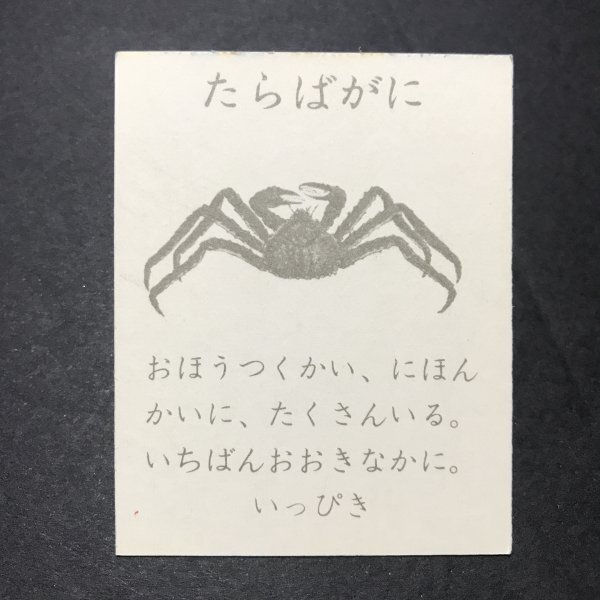 たらばがに
おほうつくかい、にほん
かいに、たくさんいる。
いちばんおおきなかに。
いっぴき